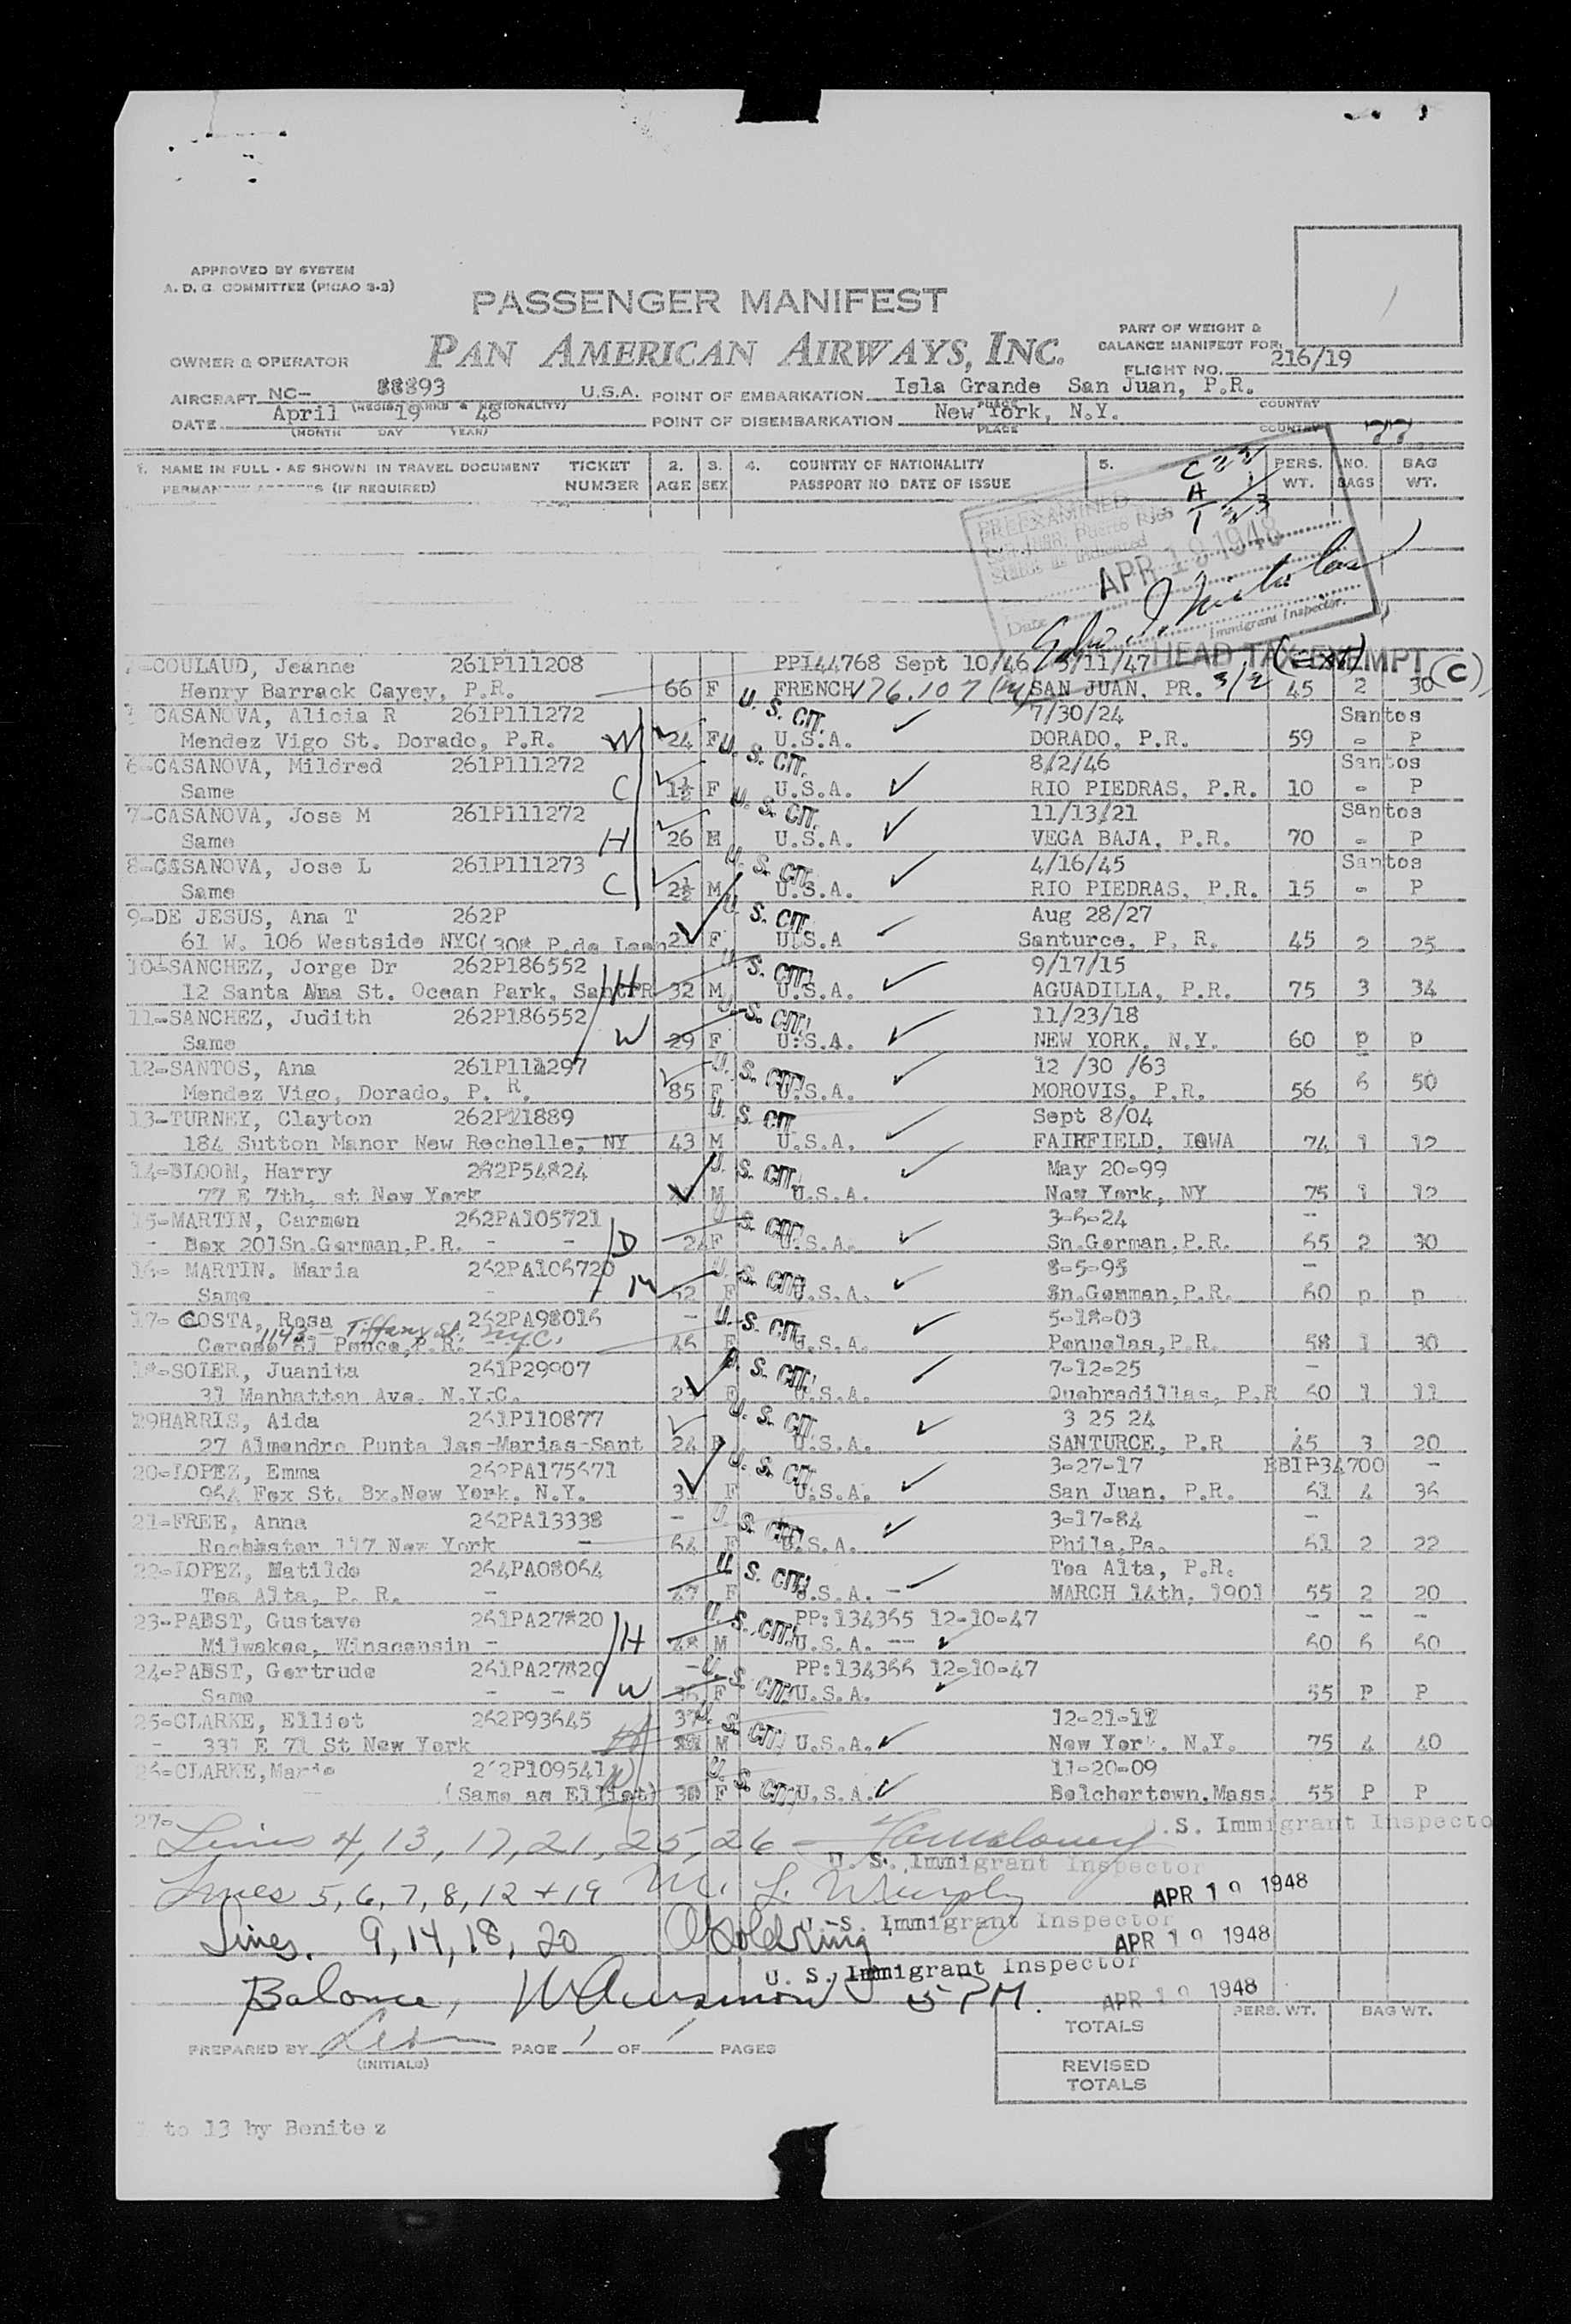 APPROVED BY SYSTEM
A. D. C. COMMITTEE (PICAO 3-3)
PASSENGER MANIFEST
PAN AMERICAN AIRWAYS, INC.
PART OF WEIGHT &
BALANCE MANIFEST FOR:
OWNER & OPERATOR
FLIGHT NO. 216/19
AIRCRAFT NC- 88893 U.S.A. POINT OF EMBARKATION Isla Grande San Juan, P.R.
(REGIS. MARKS & NATIONALITY) PLACE COUNTRY
DATE April 19 48 POINT OF DISEMBARKATION New York, N.Y.
(MONTH DAY YEAR) PLACE COUNTRY
1. NAME IN FULL - AS SHOWN IN TRAVEL DOCUMENT TICKET 2. 3. 4. COUNTRY OF NATIONALITY 5. PERS. NO. BAG
PERMANENT ADDRESS (IF REQUIRED) NUMBER AGE SEX PASSPORT NO DATE OF ISSUE WT. BAGS WT.
PREEXAMINED
San Juan, Puerto Rico
Status as indicated
APR 19 1948
Date
Immigrant Inspector.
COULAUD, Jeanne 261P111208 PP144768 Sept 10/46 3/11/47 HEAD TAX EXEMPT (C)
Henry Barrack Cayey, P.R. 66 F FRENCH 176.107 SAN JUAN, PR. 3/2 45 2 30
CASANOVA, Alicia R 261P111272 U. S. CIT. 7/30/24 Santos
Mendez Vigo St. Dorado, P.R. W 24 F U.S.A. DORADO, P.R. 59 - P
6-CASANOVA, Mildred 261P111272 U. S. CIT. 8/2/46 Santos
Same C 1½ F U.S.A. RIO PIEDRAS, P.R. 10 - P
7-CASANOVA, Jose M 261P111272 U. S. CIT. 11/13/21 Santos
Same H 26 M U.S.A. VEGA BAJA, P.R. 70 - P
8-CASANOVA, Jose L 261P111273 U. S. CIT. 4/16/45 Santos
Same C 2½ M U.S.A. RIO PIEDRAS, P.R. 15 - P
9-DE JESUS, Ana T 262P U. S. CIT. Aug 28/27
61 W. 106 Westside NYC(308 P.de Leon F U.S.A Santurce, P. R. 45 2 25
10-SANCHEZ, Jorge Dr 262P186552 U. S. CIT. 9/17/15
12 Santa Ana St. Ocean Park, Sant PR H 32 M U.S.A. AGUADILLA, P.R. 75 3 34
11-SANCHEZ, Judith 262P186552 U. S. CIT. 11/23/18
Same W 29 F U.S.A. NEW YORK, N.Y. 60 P P
12-SANTOS, Ana 261P111297 U. S. CIT. 12 /30 /63
Mendez Vigo, Dorado, P. R. 85 F U.S.A. MOROVIS, P.R. 56 6 50
13-TURNEY, Clayton 262P21889 U. S. CIT. Sept 8/04
184 Sutton Manor New Rochelle, NY 43 M U.S.A. FAIRFIELD, IOWA 74 1 12
14-BLOOM, Harry 282P54824 U. S. CIT. May 20-99
77 E 7th, st New York M U.S.A. New York, NY 75 1 12
15-MARTIN, Carmen 262PA105721 U. S. CIT. 3-6-24
Box 201Sn.German.P.R. D 24 F U.S.A. Sn.German,P.R. 65 2 30
16- MARTIN. Maria 262PA106720 U. S. CIT. 8-5-95
Same M 52 F U.S.A. Sn.German,P.R. 60 p p
17- COSTA, Rosa 262PA98016 U. S. CIT. 5-18-03
1143 - Tiffany St. N.Y.C.
Ponce,P.R. 45 F U.S.A. Penuelas,P.R. 58 1 30
18-SOLER, Juanita 261P29907 U. S. CIT. 7-12-25
31 Manhattan Ave. N.Y.C. F U.S.A. Quebradillas, P.R 60 1 11
19HARRIS, Aida 261P110877 U. S. CIT. 3 25 24
27 Almendro Punta las-Marias-Sant 24 F U.S.A. SANTURCE, P.R 45 3 20
20-LOPEZ, Emma 262PA175671 U. S. CIT. 3-27-17 EBIP34700 -
964 Fox St. Bx.New York. N.Y. 31 F U.S.A. San Juan. P.R. 61 4 36
21-FREE, Anna 262PA13338 U. S. CIT. 3-17-84
Rochester 117 New York 64 F U.S.A. Phila,Pa. 61 2 22
22-LOPEZ, Matilde 264PA08064 U. S. CIT. Toa Alta, P.R.
Toa Alta, P. R. 47 F U.S.A. MARCH 14th, 1901 55 2 20
23-PABST, Gustave 261PA27820 U. S. CIT. PP:134365 12-10-47 - - -
Milwakee, Winsconsin - H 48 M U.S.A. 60 6 60
24-PABST, Gertrude 261PA27820 U. S. CIT. PP:134366 12-10-47
Same W 36 F U.S.A. 55 P P
25-CLARKE, Elliot 262P93645 37 U. S. CIT. 12-21-11
331 E 71 St New York H M U.S.A. New York, N.Y. 75 4 40
26-CLARKE,Marie 262P109541 U. S. CIT. 11-20-09
(Same as Elliot) W 38 F U.S.A. Belchertown,Mass. 55 P P
27-
Lines 4, 13, 17, 21, 25, 26 - U.S. Immigrant Inspector
U. S. Immigrant Inspector
Lines 5, 6, 7, 8, 12 + 19 M. L. Murphy APR 19 1948
U. S. Immigrant Inspector
Lines. 9, 14, 18, 20 APR 19 1948
U. S. Immigrant Inspector
Balance, 5 PM. APR 19 1948
TOTALS PERS. WT. BAG WT.
PREPARED BY PAGE 1 OF 1 PAGES
(INITIALS)
REVISED
TOTALS
to 13 by Benitez